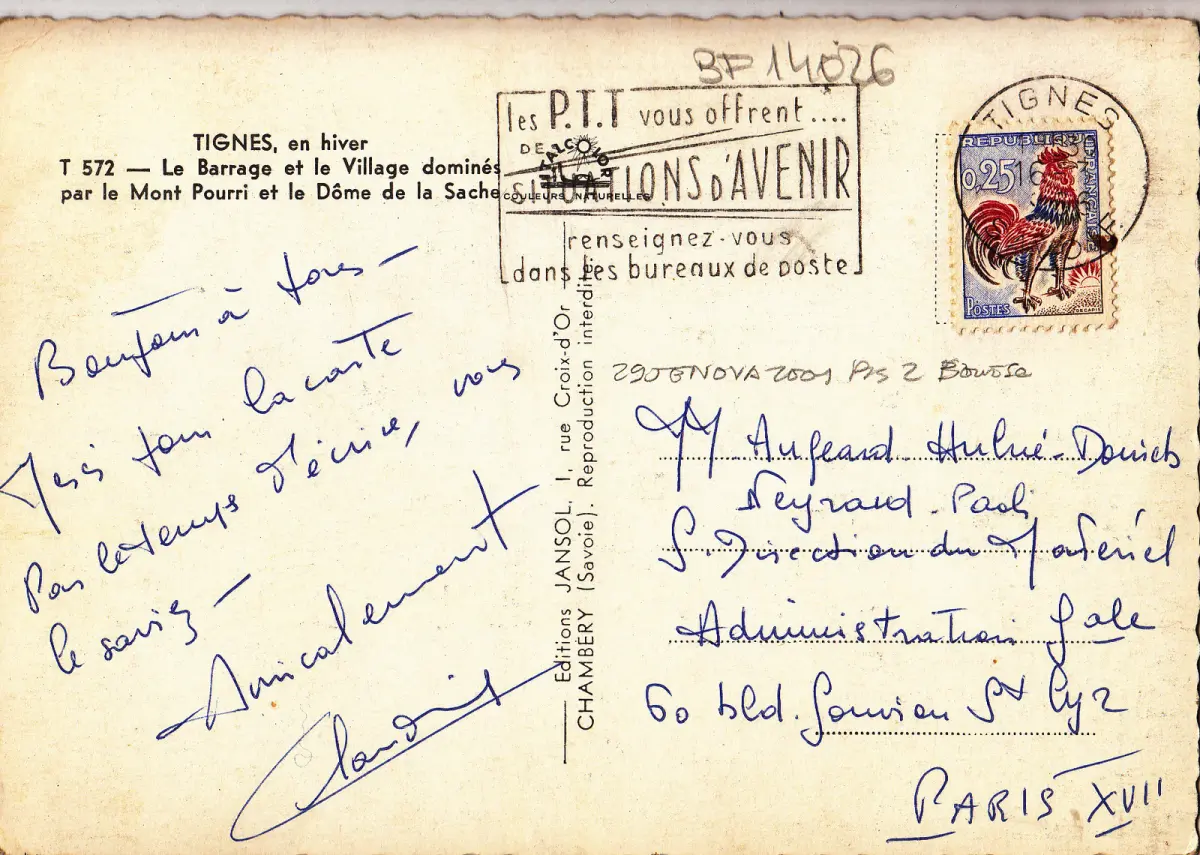 BF 14026
les P.T.T vous offrent....
DE
SITUATIONS D'AVENIR
renseignez-vous
dans les bureaux de poste
TIGNES
REPUBLIQUE FRANÇAISE
0,25
POSTES
DECARIS
TIGNES, en hiver
T 572 — Le Barrage et le Village dominés
par le Mont Pourri et le Dôme de la Sache
ITALCOLOR
COULEURS NATURELLES
Bonjour à tous —
la carte
Pas le temps d'écrire, vous
le saviez —
Amicalement
Editions JANSOL, 1, rue Croix-d'Or
CHAMBERY (Savoie). Reproduction interdite.
29 GENOVA 2001
MM Augeard Hulné-Daniels
Neyraud-Paoli
S. Direction du Matériel
Administration Gale
60 bld. Gouvion St Cyr
PARIS XVII